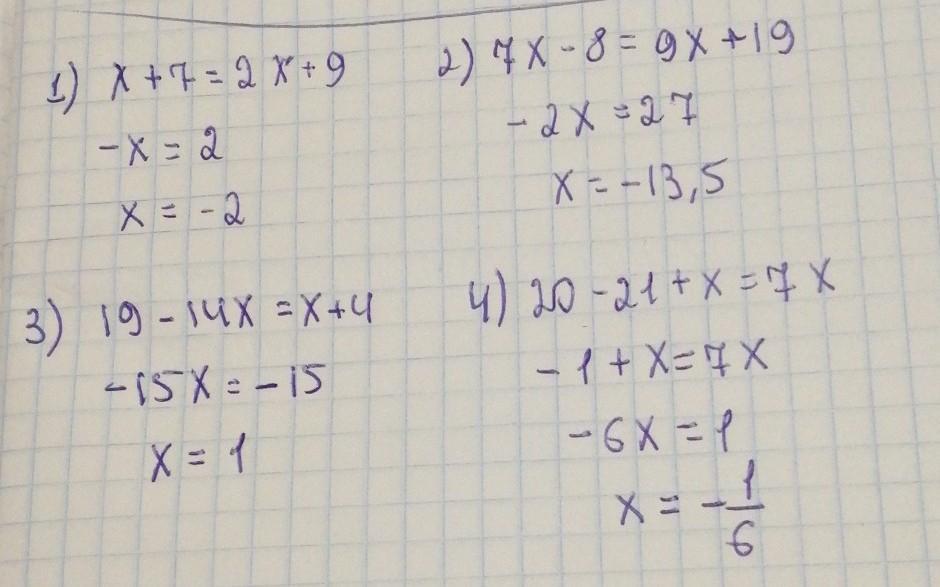 1) x + 7 = 2x + 9
-x = 2
x = -2
2) 7x - 8 = 9x + 19
-2x = 27
x = -13,5
3) 19 - 14x = x + 4
-15x = -15
x = 1
4) 20 - 21 + x = 7x
-1 + x = 7x
-6x = 1
x = -1/6